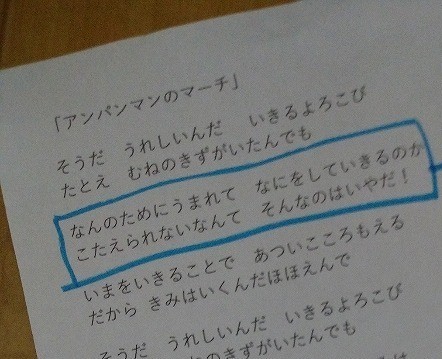 「アンパンマンのマーチ」
そうだ　うれしいんだ　いきるよろこび
たとえ　むねのきずがいたんでも
なんのためにうまれて　なにをしていきるのか
こたえられないなんて　そんなのはいやだ！
いまをいきることで　あついこころもえる
だから きみはいくんだほほえんで
そうだ　うれしいんだ　いきるよろこび
むねのきずがいたんでも